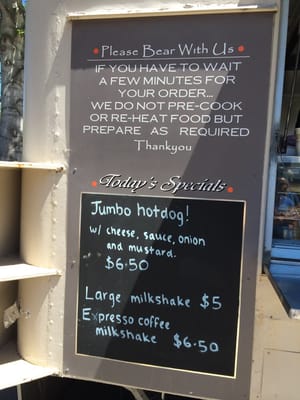 Please Bear With Us
IF YOU HAVE TO WAIT
A FEW MINUTES FOR
YOUR ORDER...
WE DO NOT PRE-COOK
OR RE-HEAT FOOD BUT
PREPARE AS REQUIRED
Thankyou
Today's Specials
Jumbo hotdog!
w/ cheese, sauce, onion
and mustard.
$6.50
Large milkshake $5
Expresso coffee
milkshake $6.50